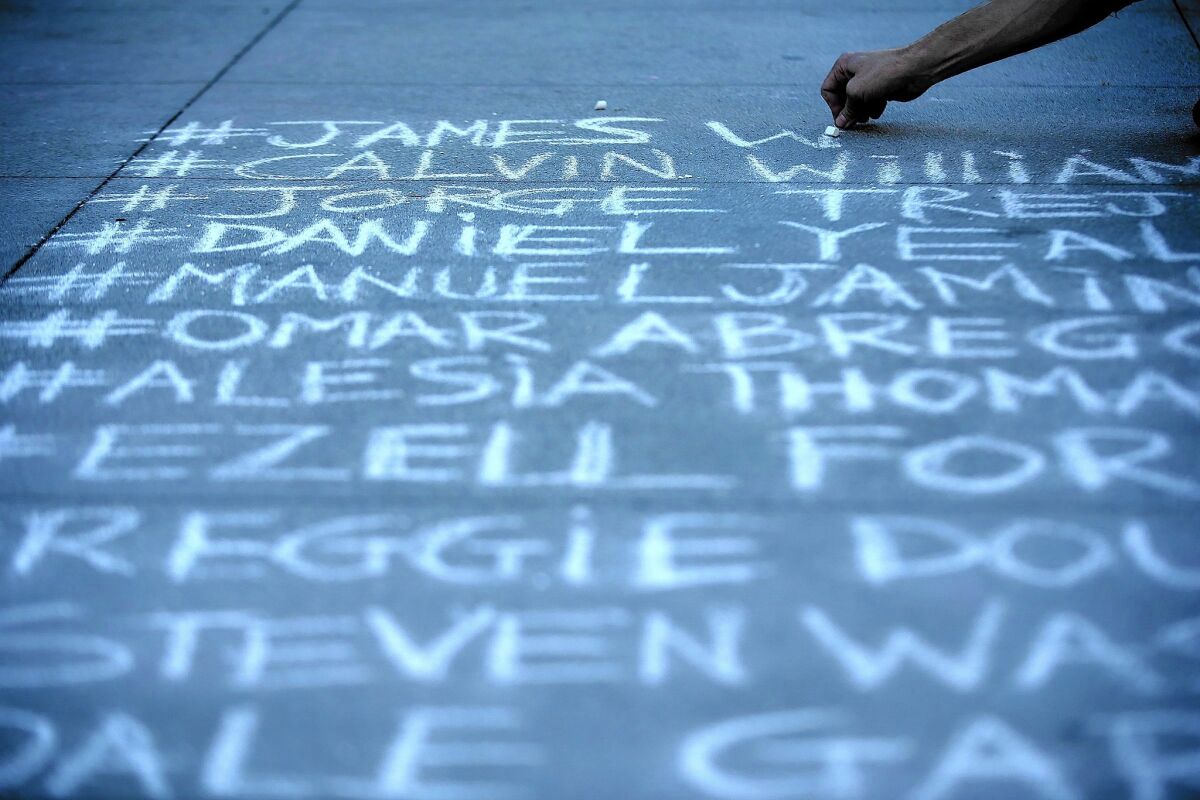 #JAMES W
#CALVIN WilliAM
#JORGE TREJ
#DANiEL YEAL
#MANUEL JAMiN
#OMAR ABREGO
#ALESiA THOMA
#EZELL FOR
REGGiE DOU
STEVEN WA
DALE GAR